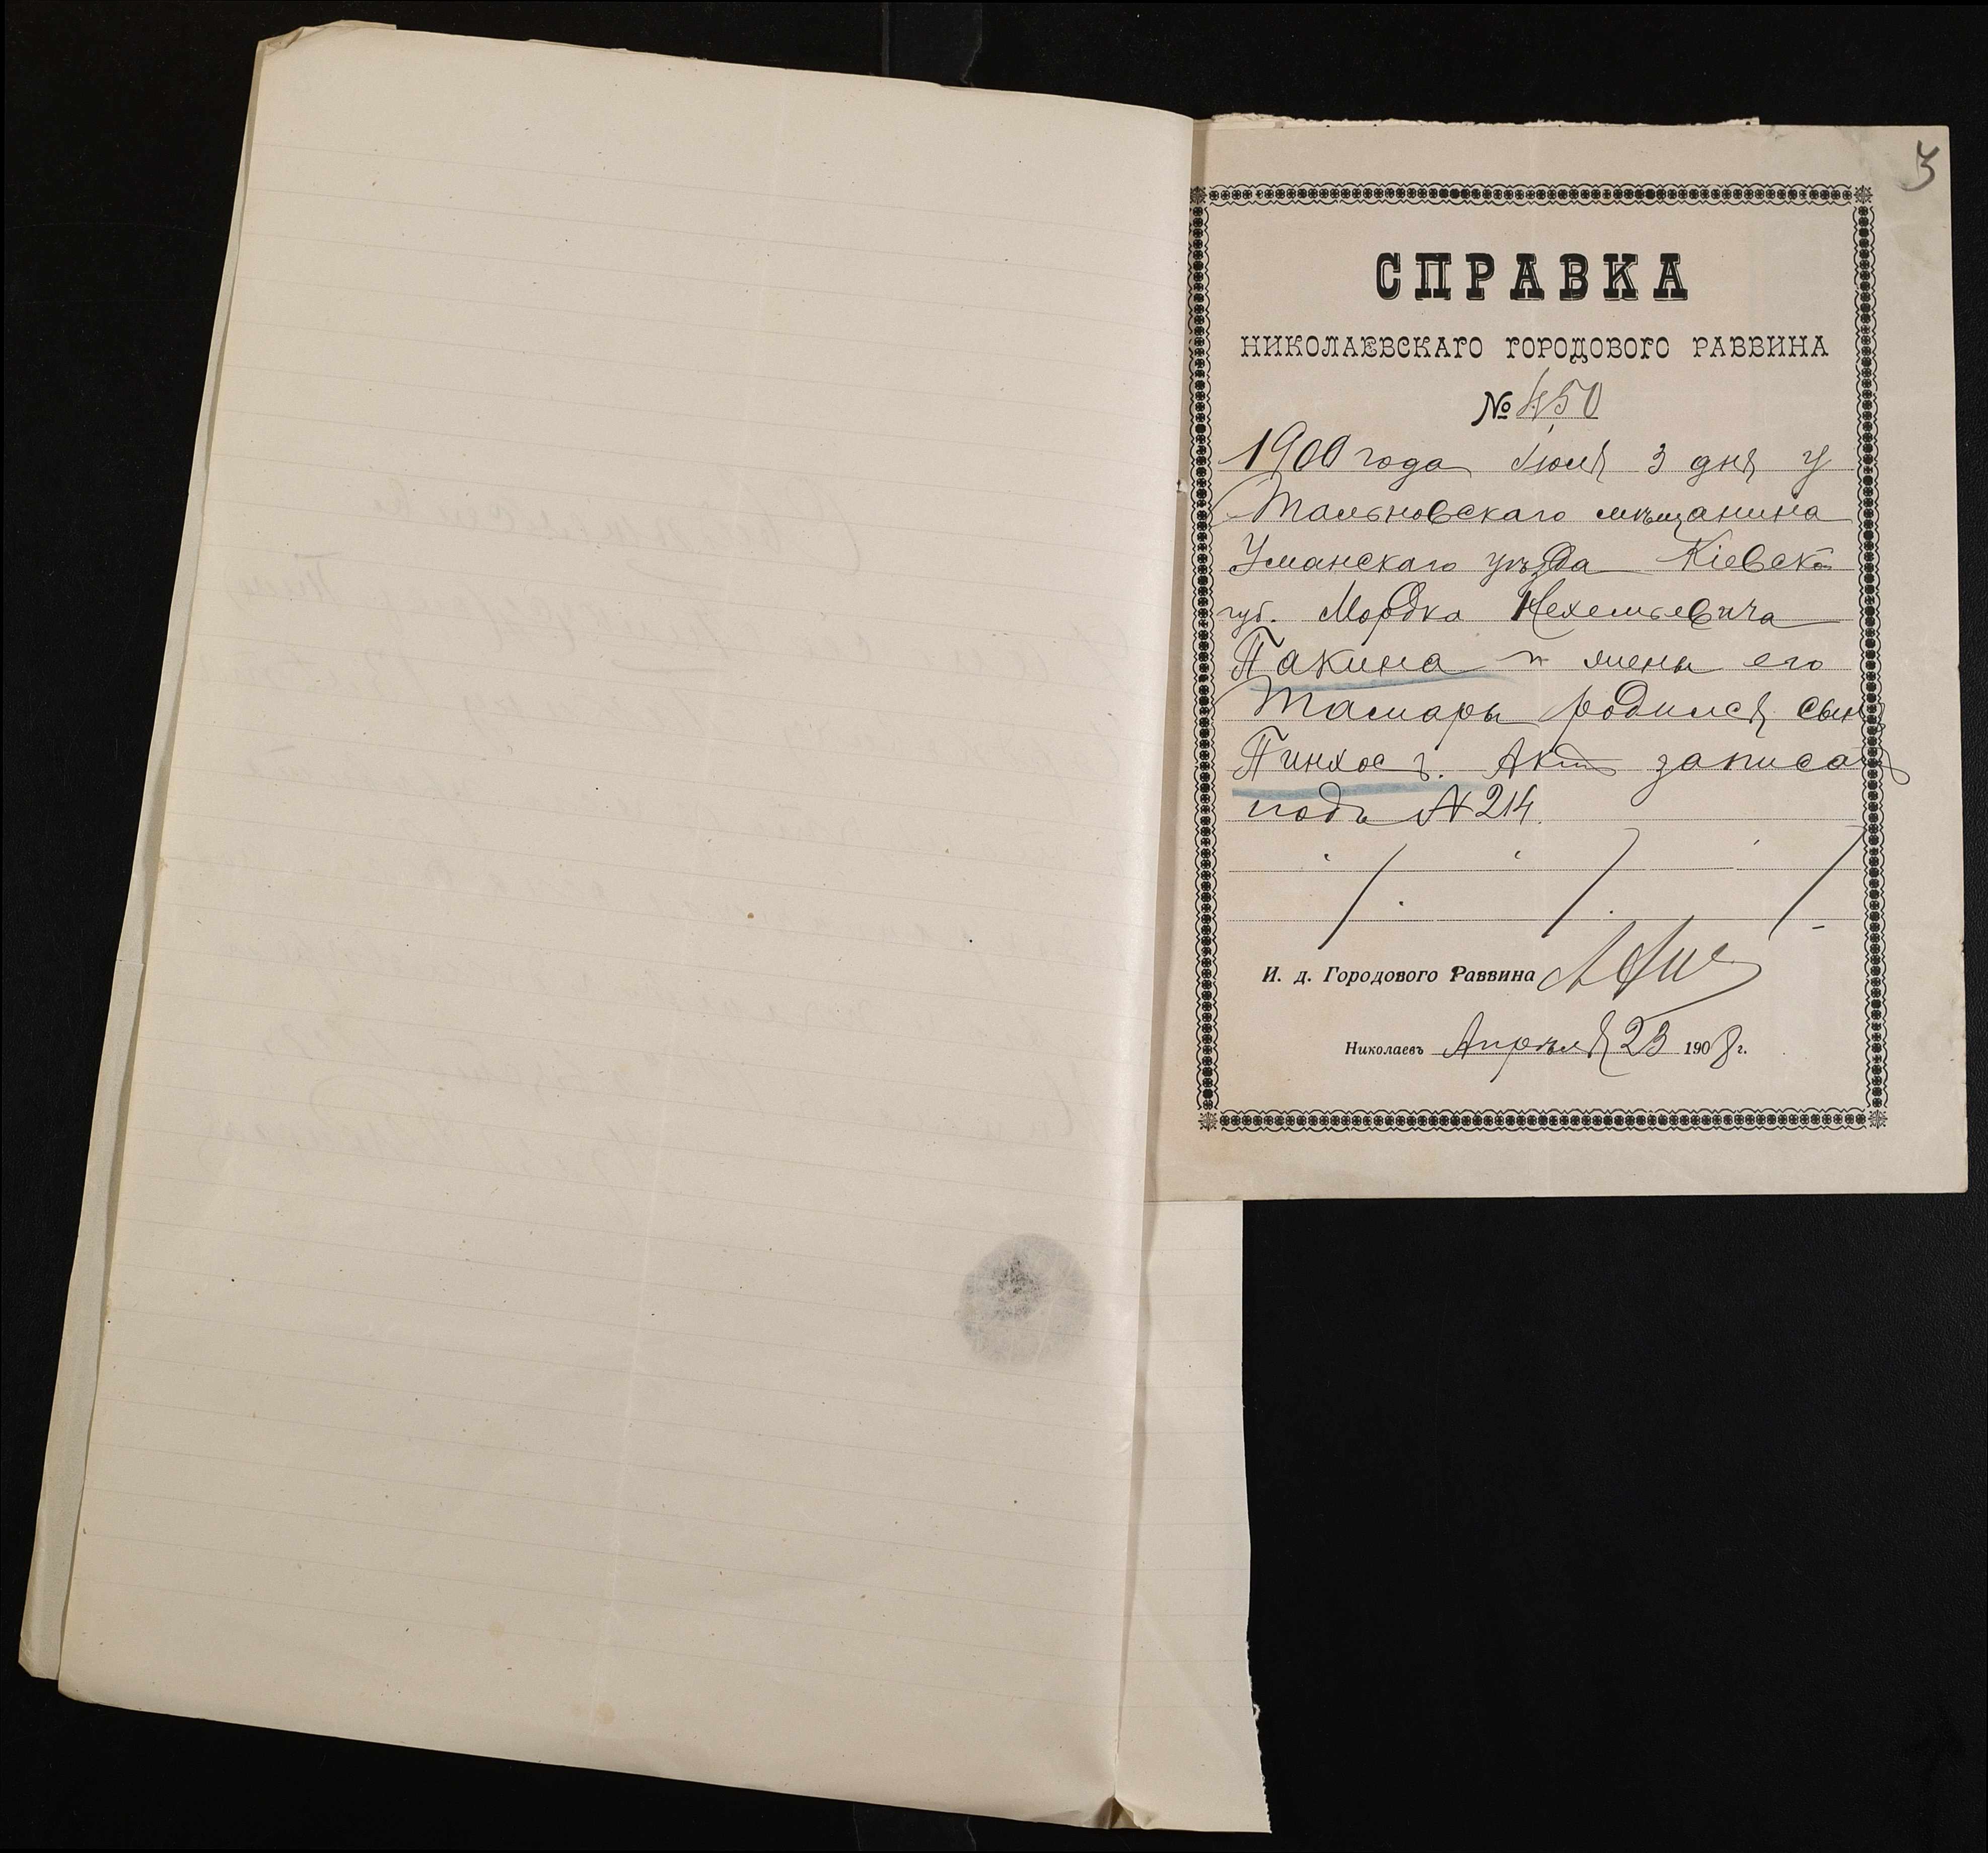 3
СПРАВКА
НИКОЛАЕВСКАГО ГОРОДОВОГО РАВВИНА
№ 450
1900 года Іюля 3 дня у
Тальновскаго мѣщанина
Уманскаго уѣзда Кіевско
губ. Мордка Нехемьевича
Пакина и жены его
Тамары родился сынъ
Пинхосъ. Актъ записанъ
подъ № 214.
И. д. Городового Раввина
Николаевъ Апрѣля 23 1908 г.